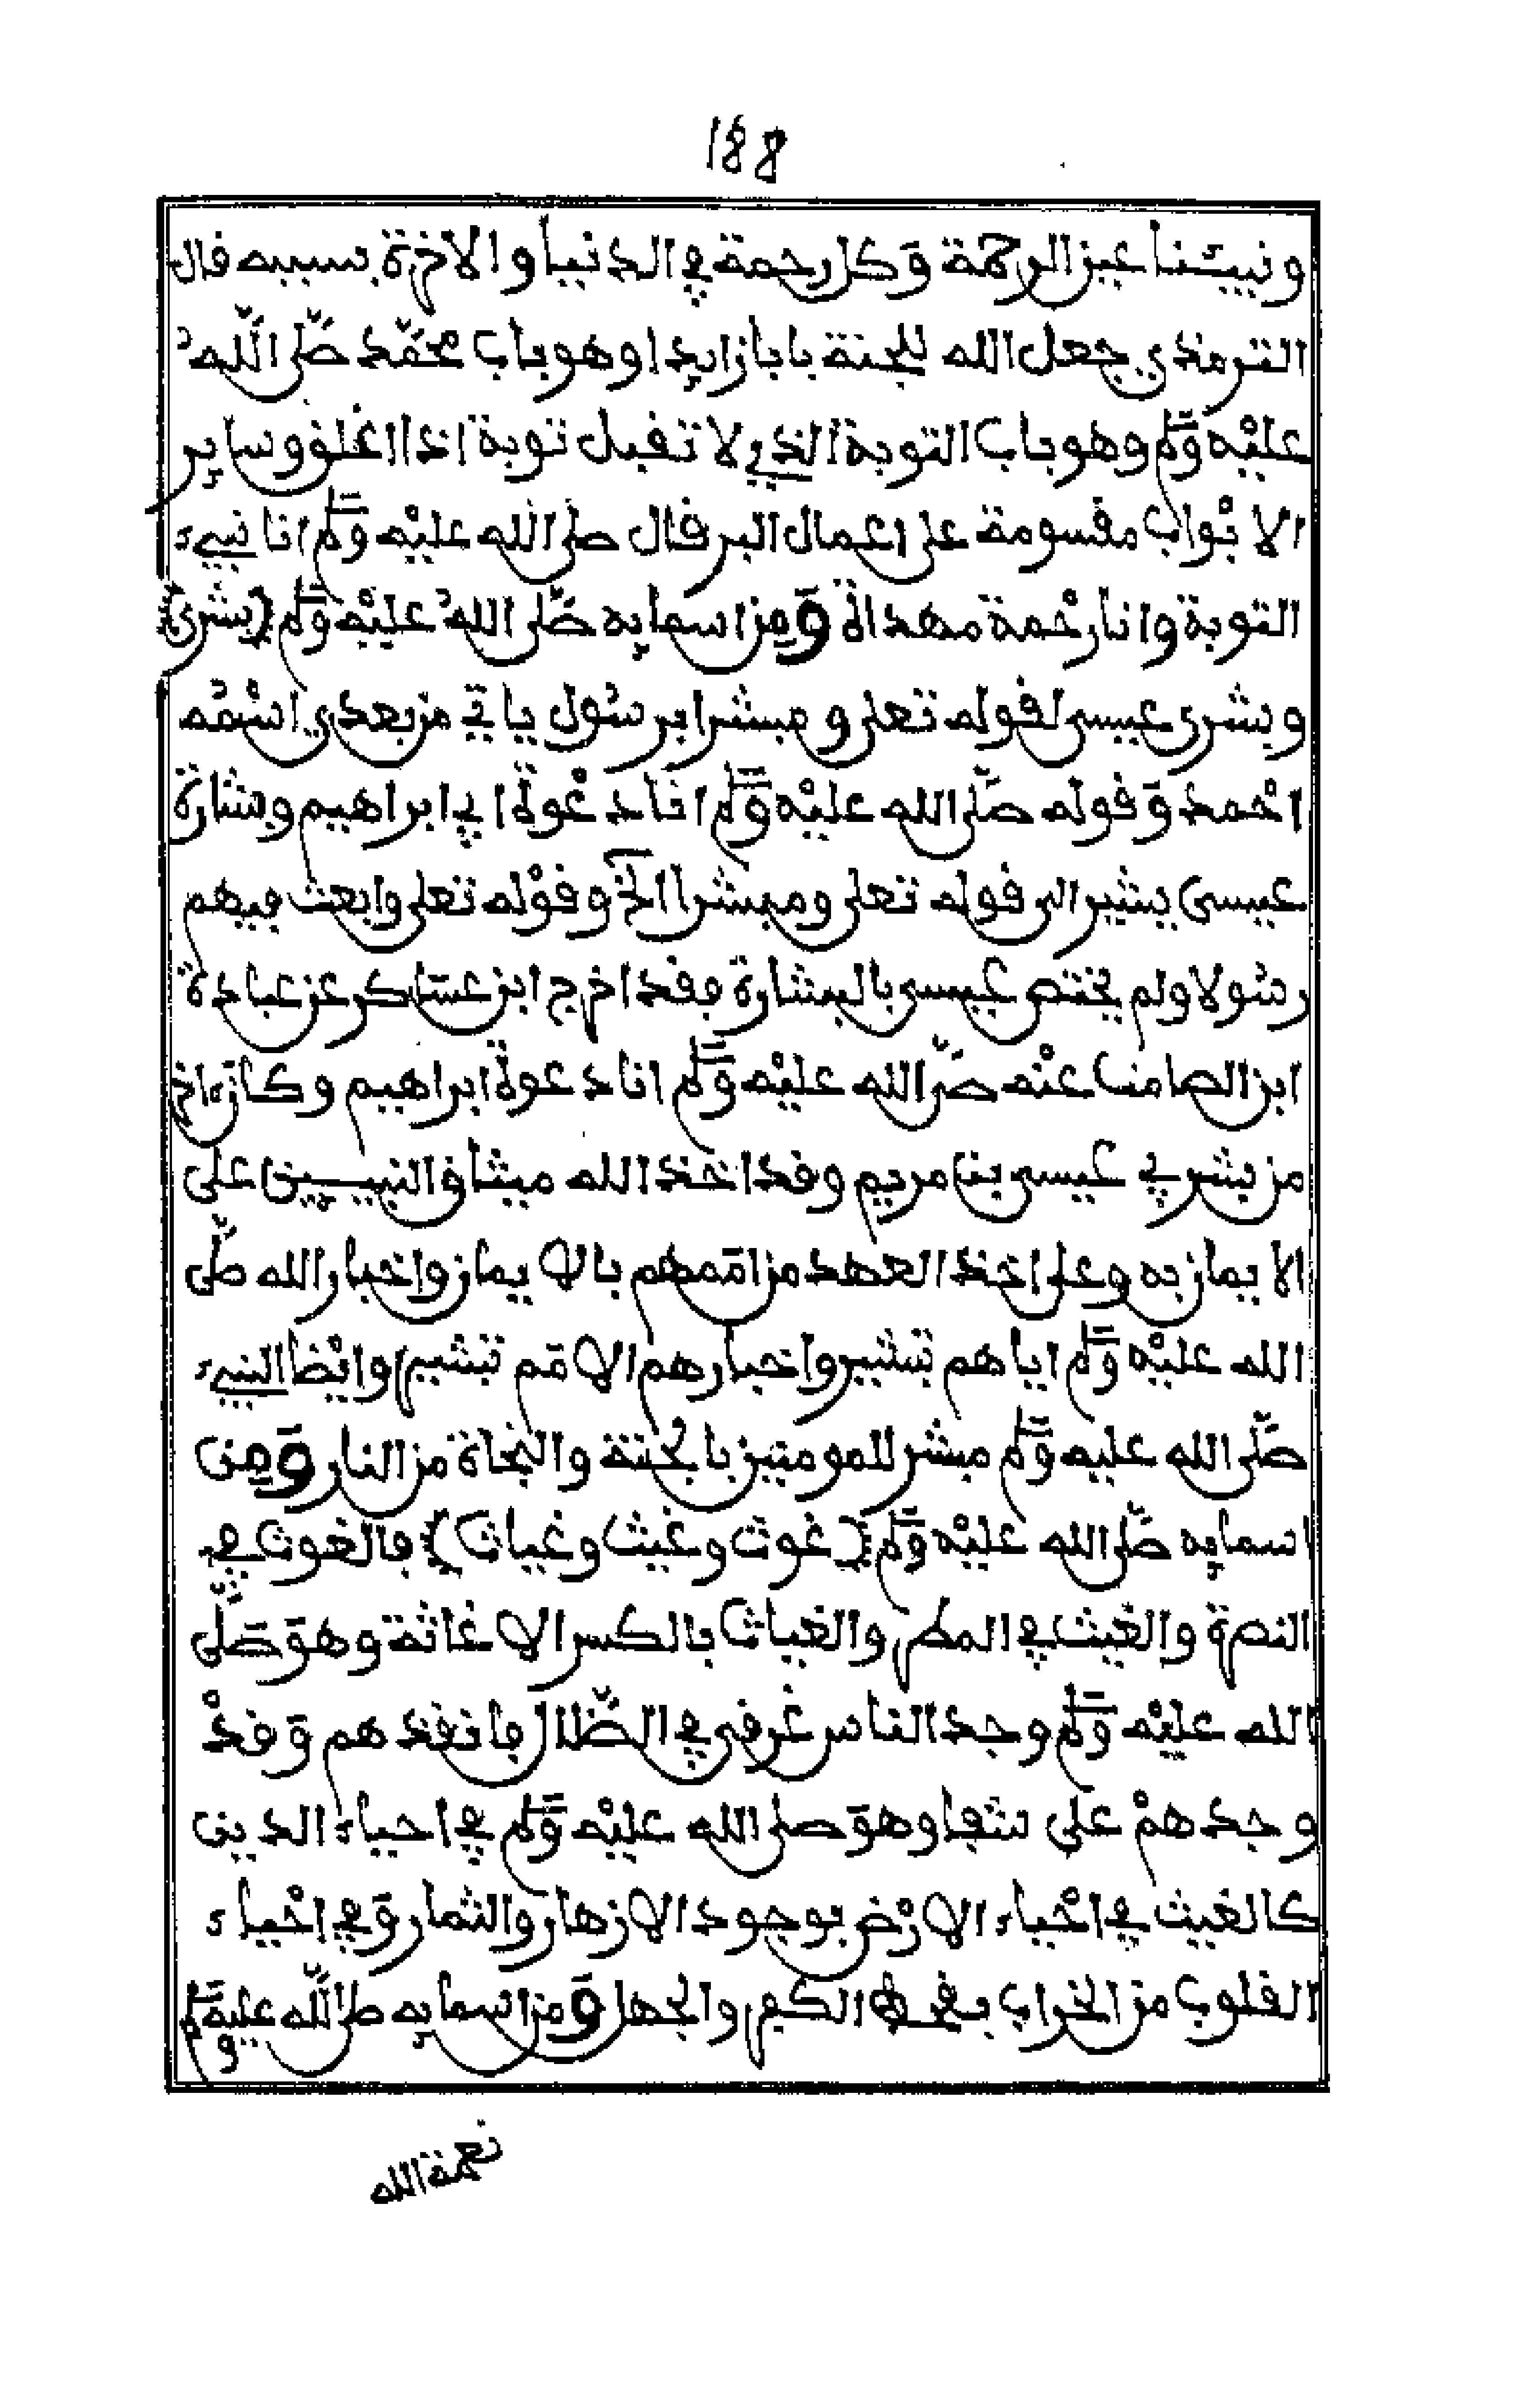 188
ونبيّنا عين الرحمة وكل رحمة في الدنيا والاخرة بسببه قال
الترمذي جعل الله للجنة بابا زايدا وهو باب محمّد صلّى اللّه
عليْه وسلم وهو باب التوبة الذي لا تقبل توبة اذا اغلق وساير
الابْواب مقسومة على اعمال البر قال صلى الله عليْه وسلم انا نبيء
التوبة وانا رحْمة مهداة وَمِن اسمايه صلّى الله عليْه وسلم (بشرى)
وبشرى عيسى لقوله تعلى ومبشرا برسُول ياتي من بعدي اسْمُه
احْمد وقوله صلّى الله عليْه وسلم انا دعْوة ابي ابراهيم وبشارة
عيسى يشير الى قوله تعلى ومبشرا الخ وقوْله تعلى وابعث فيهم
رسُولا ولم يختص عيسى بالبشارة فقد اخرج ابن عسّاكر عن عبادة
ابن الصامت عنْه صلّى الله عليْه وسلم انا دعوة ابراهيم وكان ءاخر
من بشر بي عيسى بن مريم وقد اخذ الله ميثاق النبيـين على
الايمان به وعلى اخذ العهد من اممهم بالايمان واخبار الله صلّى
الله عليْه وسلم اياهم تبشير واخبارهم الامم تبشير وايْضا النبيء
صلّى الله عليه وسلم مبشر للمومنين بالجنة والنجاة من النار وَمِن
اسمايه صلّى الله عليْه وسلم (غوث وغيث وغياث) فالغوث في
النصرة والغيث في المطر والغياث بالكسر الاغاثة وهوَ صَلّى
الله عليْه وسلم وجد الناس غرقى في الضّلال فانقذهم وَقدْ
وجدهمْ على شفا وهوَ صلى الله عليْه وسلم في احياء الدين
كالغيث في احْياء الارْض بوجود الازهار والثمار وَفي احْياء
القلوب من الخراب بـ الكفر والجهل وَمن اسمايه صلى اللّه عليه وسلم
نعمة الله